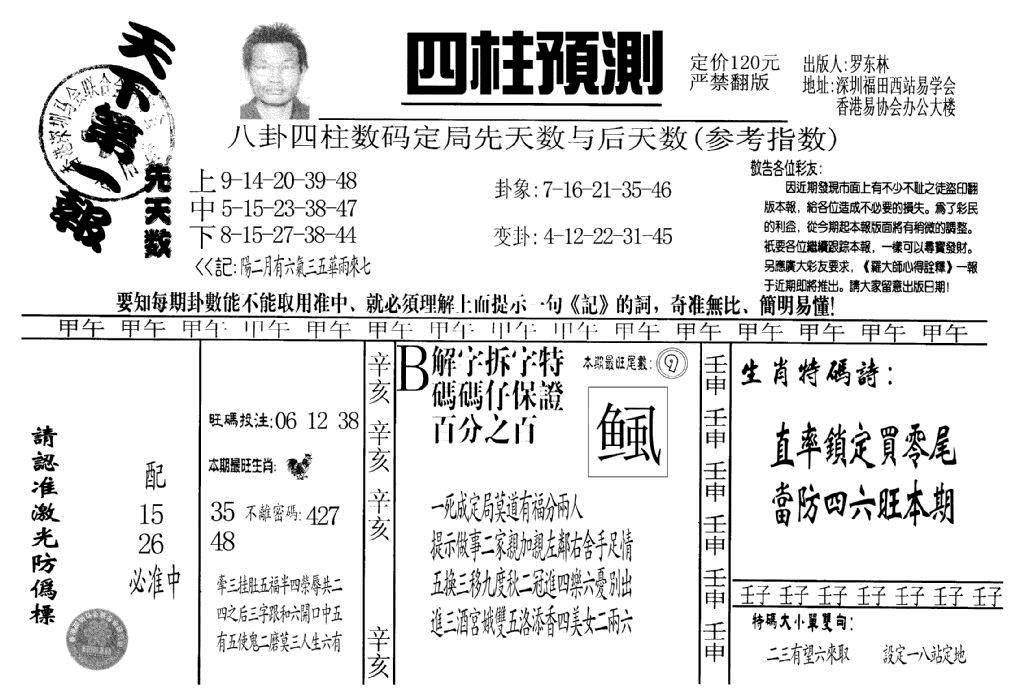 天下第一報
四柱預測
定价120元
严禁翻版
出版人:罗东林
地址:深圳福田西站易学会
香港易协会办公大楼
八卦四柱数码定局先天数与后天数(参考指数)
先天数
上 9-14-20-39-48
中 5-15-23-38-47
下 8-15-27-38-44
卦象: 7-16-21-35-46
变卦: 4-12-22-31-45
《記: 陽二月有六氣三五華雨來七
敬告各位彩友:
因近期發現市面上有不少不耻之徒盜印翻
版本報,給各位造成不必要的損失。爲了彩民
的利益,從今期起本報版面將有稍微的調整。
衹要各位繼續跟踪本報,一樣可以尋寶發財。
另應廣大彩友要求,《羅大師心得詮釋》一報
于近期即將推出。請大家留意出版日期!
要知每期卦數能不能取用准中、就必須理解上面提示一句《記》的詞,奇准無比、簡明易懂!
甲午 甲午 甲午 甲午 甲午 甲午 甲午 甲午 甲午 甲午 甲午 甲午 甲午 甲午 甲午
請認准激光防僞標
配
15
26
必准中
旺碼投注:06 12 38
本期最旺生肖:
35 不離密碼:427
48
牽三挂肚五福半四榮辱共二
四之后三字跟和六開口中五
有五使鬼二磨莫三人生六有
辛亥 辛亥 辛亥 辛亥
B解字拆字特
碼碼仔保證
百分之百
本期最旺尾數: 9
一死成定局莫道有福分兩人
提示做事二家親加親左鄰右舍手足情
五換三移九度秋二冠進四樂六憂別出
進三酒宮娥雙五洛添香四美女二兩六
壬申 壬申 壬申 壬申 壬申 壬申
生肖特碼詩:
直率鎖定買零尾
當防四六旺本期
壬子 壬子 壬子 壬子 壬子 壬子 壬子
特碼大小單雙句:
二三有望六來取 設定一八站定地